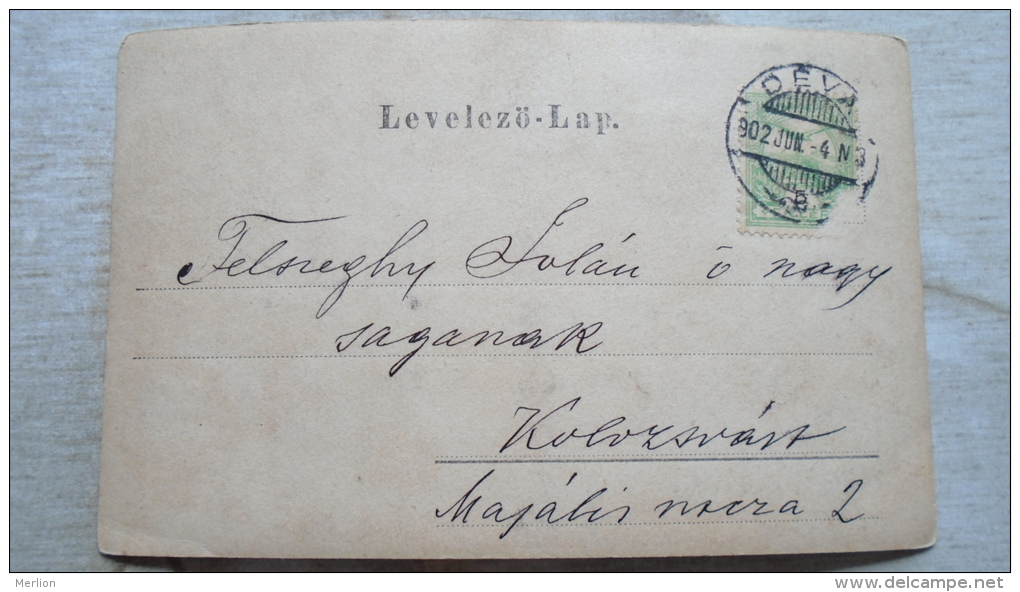 Levelező-Lap.
DÉVA
902 JUN. -4 N 3
Felszeghy Jolán ő nagy
saganak
Kolozsvárt
Majális utcza 2
Merlion
www.delcampe.net